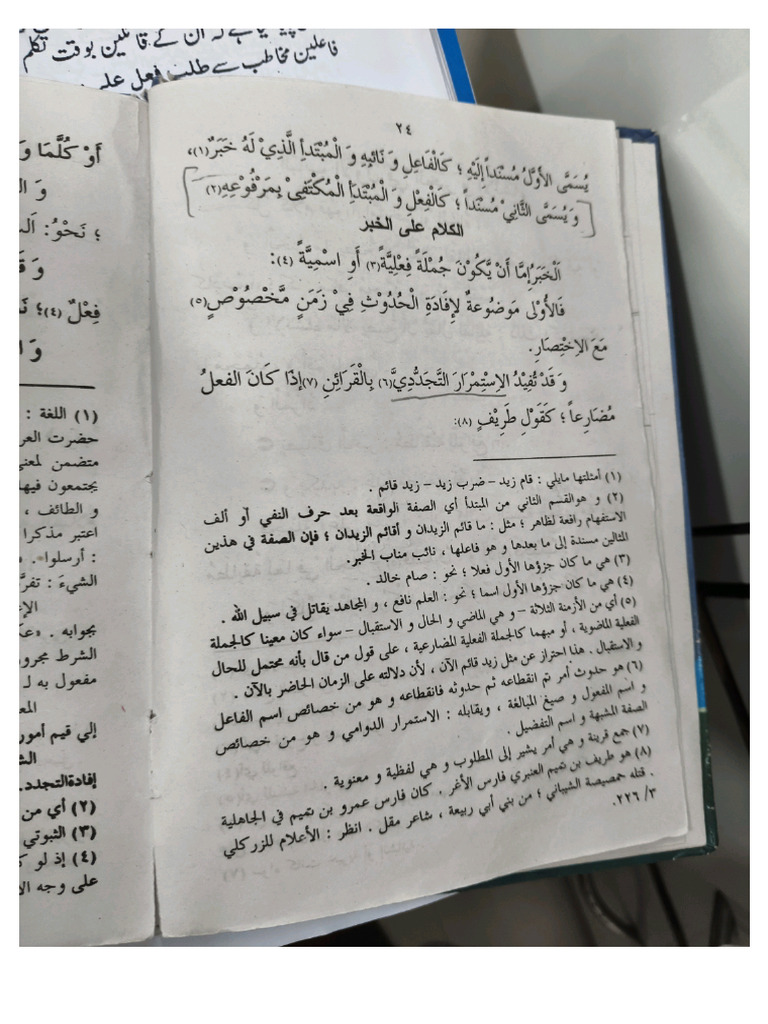 فاعلین مخاطب سے طلب فعل
٢٤
يُسَمَّى الأَوَّلُ مُسْنَداً إِلَيْهِ ؛ كَالْفَاعِلِ وَ نَائِبِهِ وَ الْمُبْتَدَأِ الَّذِيْ لَهُ خَبَرٌ (١)،
وَ يُسَمَّى الثَّانِيْ مُسْنَداً ؛ كَالْفِعْلِ وَ الْمُبْتَدَأِ الْمُكْتَفِيْ بِمَرْفُوْعِهِ (٢)
الكلام على الخبر
اَلْخَبَرُ إِمَّا أَنْ يَّكُوْنَ جُمْلَةً فِعْلِيَّةً (٣) أَوِ اسْمِيَّةً (٤) :
فَالأُوْلى مَوضُوعةٌ لِإِفَادَةِ الْحُدُوْثِ فِيْ زَمَنٍ مَّخْصُوْصٍ (٥)
مَعَ الاِخْتِصَارِ.
وَ قَدْ تُفِيْدُ الاِسْتِمْرَارَ التَّجَدُّدِيَّ (٦) بِالْقَرَائِنِ (٧) إِذَا كَانَ الفعلُ
مُضَارِعاً ؛ كَقَوْلِ طَرِيْفٍ (٨):
(١) أمثلتها مايلي : قام زيد – ضرب زيد – زيد قائم .
(٢) و هوالقسم الثاني من المبتدأ أي الصفة الواقعة بعد حرف النفي أو ألف
الاستفهام رافعة لظاهر ؛ مثل : ما قائم الزيدان و أقائم الزيدان ؛ فإن الصفة في هذين
المثالين مسندة إلى ما بعدها و هو فاعلها ، نائب مناب الخبر.
(٣) هي ما كان جزؤها الأول فعلا ؛ نحو : صام خالد .
(٤) هي ما كان جزؤها الأول اسما ؛ نحو : العلم نافع ، و المجاهد يقاتل في سبيل الله .
(٥) أي من الأزمنة الثلاثة – و هي الماضي و الحال و الاستقبال – سواء كان معينا كالجملة
الفعلية الماضوية ، أو مبهما كالجملة الفعلية المضارعية ، على قول من قال بأنه محتمل للحال
و الاستقبال . هذا احتراز عن مثل زيد قائم الآن ، لأن دلالته على الزمان الحاضر بالآن .
(٦) هو حدوث أمر ثم انقطاعه ثم حدوثه فانقطاعه و هو من خصائص اسم الفاعل
و اسم المفعول و صيغ المبالغة ، ويقابله : الاستمرار الدوامي و هو من خصائص
الصفة المشبهة و اسم التفضيل .
(٧) جمع قرينة و هي أمر يشير إلى المطلوب و هي لفظية و معنوية .
(٨) هو طريف بن تميم العنبري فارس الأغر . كان فارس عمرو بن تميم في الجاهلية
. قتله حمصيصة الشيباني ؛ من بني أبي ربيعة ، شاعر مقل . انظر : الأعلام للزركلي
٣/ ٢٢٦.
أَوْ كُلَّمَا
؛ نَحْوُ:
فِعْلٌ (٤)؛
(١) اللغة :
حضرت
متضمن
يجتمعون فيها
و الطائف ،
اعتبر مذكرا
: أرسلوا».
الشيءَ :
بجوابه .
الشرط مجرور
مفعول به
إلي قيم أمور
إفادة التجدد.
(٢) أي من
(٣) الثبوتي
(٤) إذ لو
على وجه